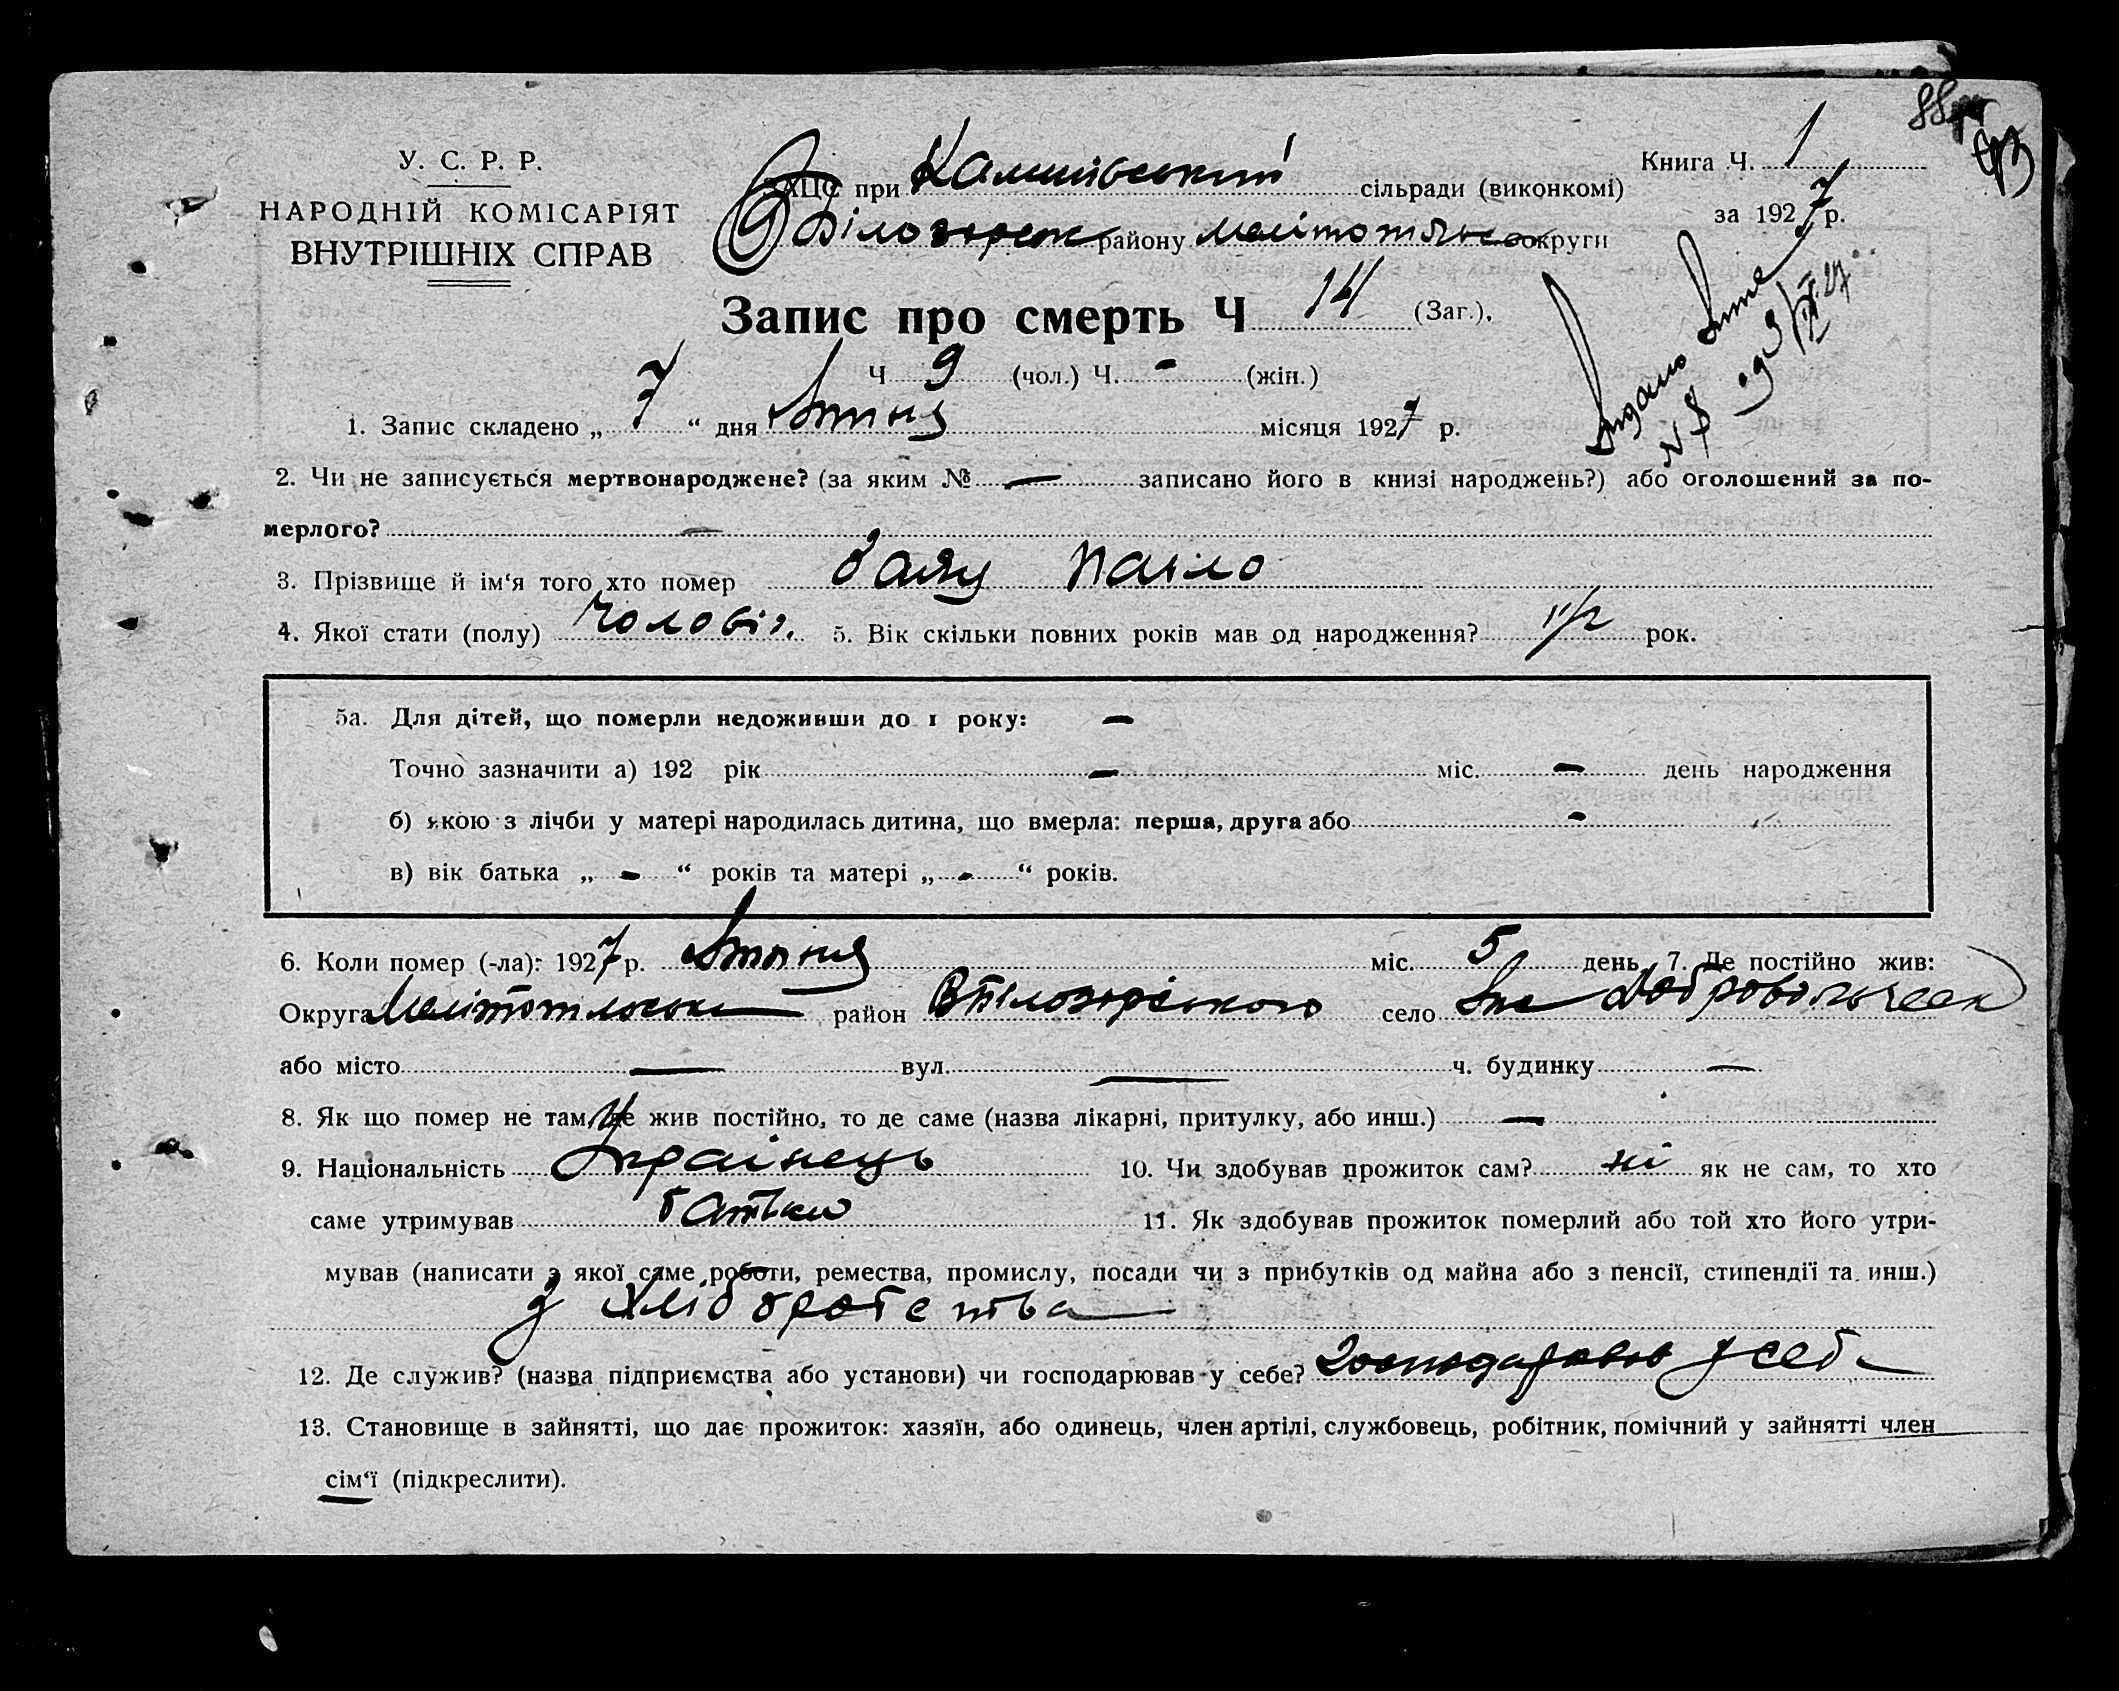 88
У. С. Р. Р.
НАРОДНІЙ КОМІСАРІЯТ
ВНУТРІШНІХ СПРАВ
ЗАЦС при сільради (виконкомі)
Книга Ч. 1
району округи
за 1927 р.
Запис про смерть Ч 14 (Заг.).
Ч 9 (чол.) Ч. - (жін.)
Видано
N 8 од 3/IX-27
1. Запис складено „ 7 “ дня Липня місяця 1927 р.
2. Чи не записується мертвонароджене? (за яким № — записано його в книзі народжень?) або оголошений за по-
мерлого? —
3. Прізвище й ім‘я того хто помер Заяц Павло
4. Якої стати (полу) чоловіч. 5. Вік скільки повних років мав од народження? рок.
5а. Для дітей, що померли недоживши до 1 року: —
Точно зазначити а) 192 рік — міс. — день народження
б) якою з лічби у матері народилась дитина, що вмерла: перша, друга або -
в) вік батька „ - “ років та матері „ - “ років.
6. Коли помер (-ла): 1927 р. Липня міс. 5 день 7. Де постійно жив:
Округа район село
або місто — вул. — ч. будинку —
8. Як що помер не там, де жив постійно, то де саме (назва лікарні, притулку, або инш.) —
9. Національність Українець 10. Чи здобував прожиток сам? ні як не сам, то хто
саме утримував батьки 11. Як здобував прожиток померлий або той хто його утри-
мував (написати з якої саме роботи, ремества, промислу, посади чи з прибутків од майна або з пенсії, стипендії та инш.)
з хліборобства
12. Де служив? (назва підприємства або установи) чи господарював у себе? господарював у себе
13. Становище в зайнятті, що дає прожиток: хазяїн, або одинець, член артілі, службовець, робітник, помічний у зайнятті член
сім‘ї (підкреслити).